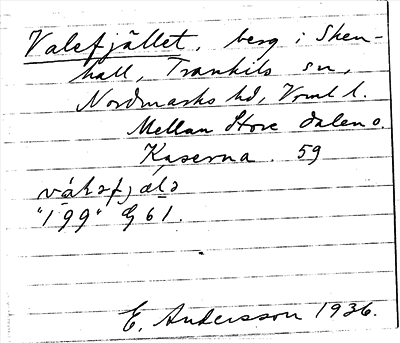 Valefjället, berg i Sken-
hall, Trankils sn,
Nordmarks hd, Vrml l.
Mellan Store dalen o.
Kaserna. 59
"199" G 61.
E. Andersson 1936.